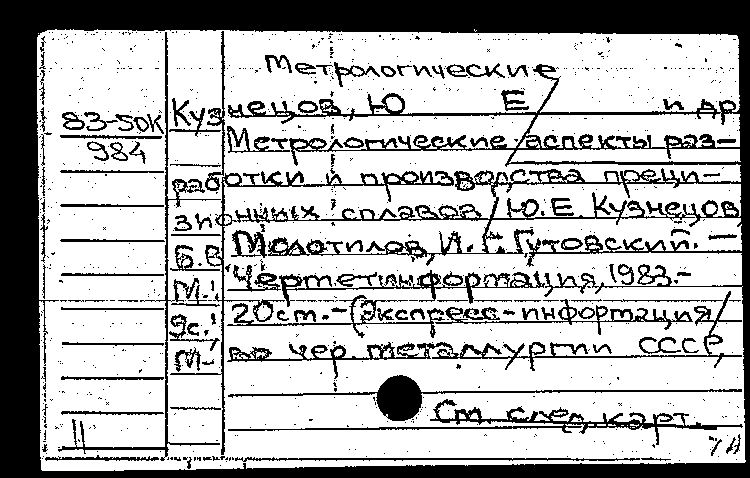 Метрологические
83-50К
984
Кузнецов, Ю Е и др
Метрологические аспекты раз-
работки и производства преци-
зионных сплавов / Ю.Е. Кузнецов,
Б.В Молотилов, И.С. Гутовский. —
М.: Черметинформация, 1983.-
9с.; 20см.-(Экспресс-информация /
М-во чер. металлургии СССР,
См. след. карт.
11